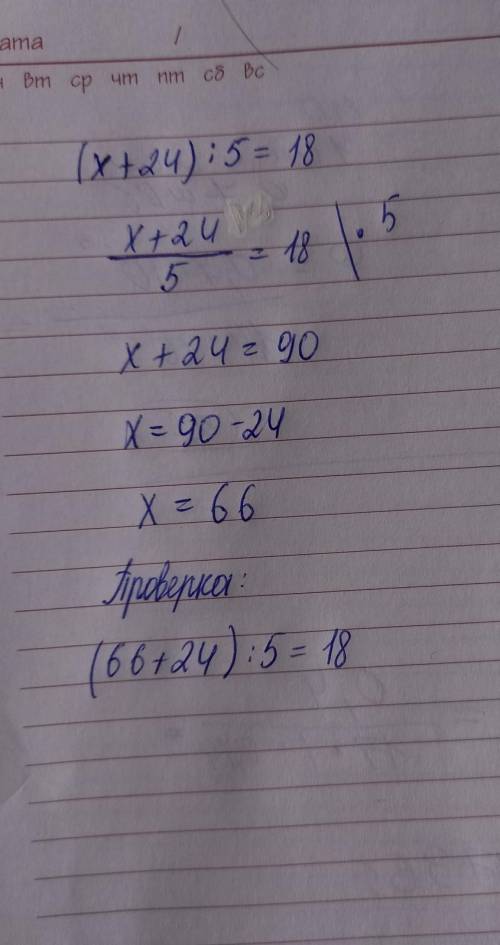 ата /
н вт ср чт пт сб вс
(x+24):5=18
x+24/5 = 18 \ · 5
x+24=90
x=90-24
x=66
Проверка:
(66+24):5=18